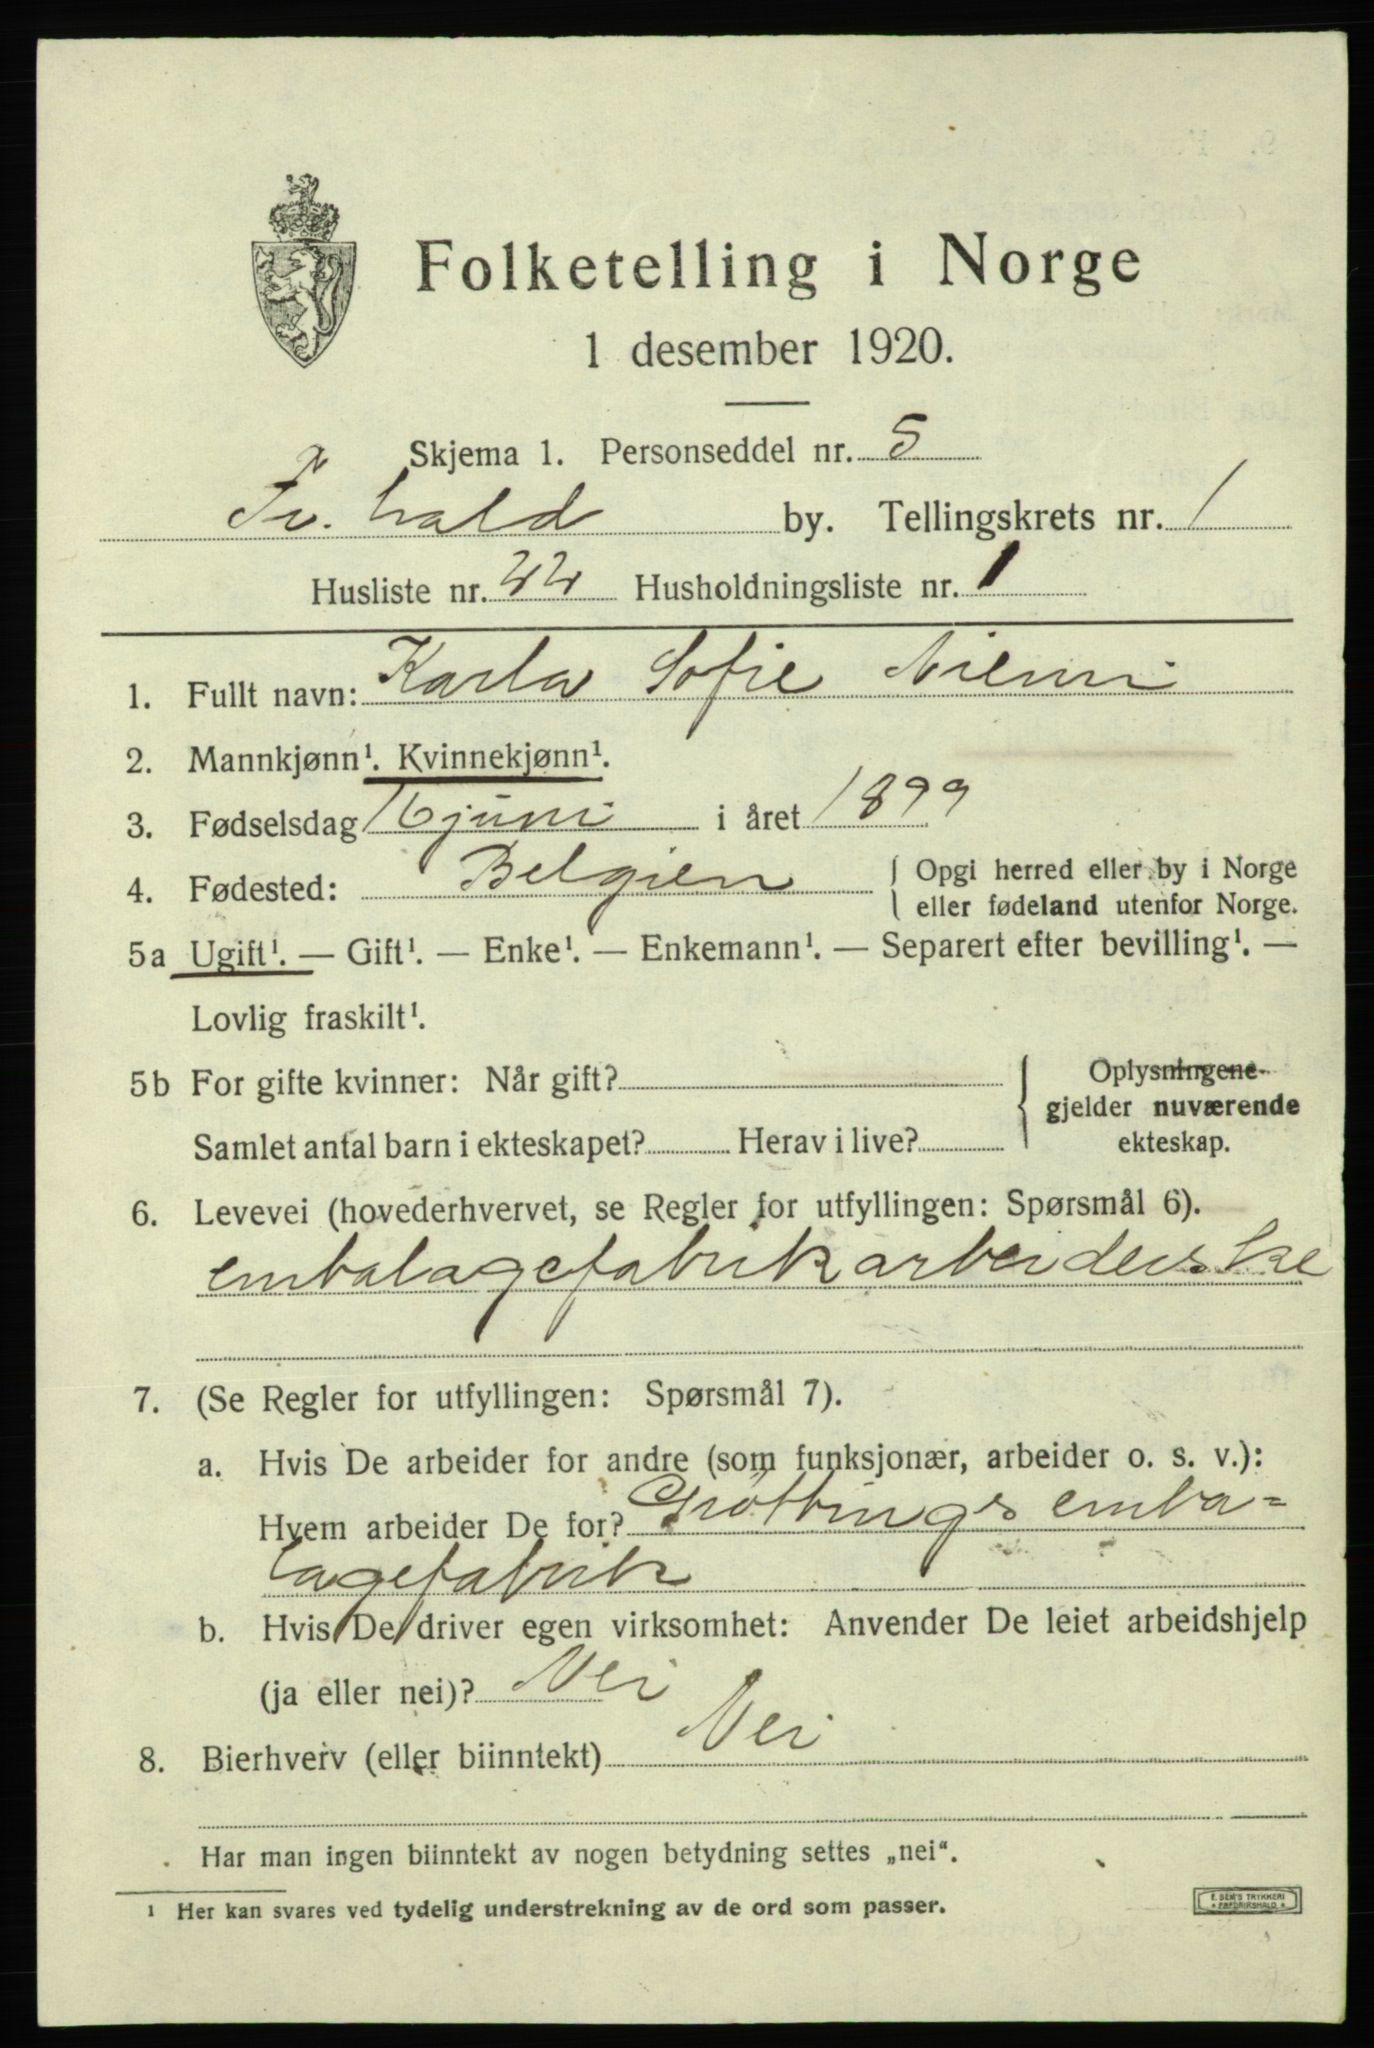 Folketelling i Norge
1 desember 1920.
Skjema 1. Personseddel nr. 5
Fr.hald by. Tellingskrets nr. 1
Husliste nr. 22 Husholdningsliste nr. 1
1. Fullt navn: Karla Sofie Niemi
2. Mannkjønn¹. Kvinnekjønn¹.
3. Fødselsdag 16 juni i året 1899
4. Fødested: Belgien { Opgi herred eller by i Norge
eller fødeland utenfor Norge.
5a Ugift¹. — Gift¹. — Enke¹. — Enkemann¹. — Separert efter bevilling¹. —
Lovlig fraskilt¹.
5b For gifte kvinner: Når gift? { Oplysningene
gjelder nuværende
Samlet antal barn i ekteskapet? Herav i live? ekteskap.
6. Levevei (hovederhvervet, se Regler for utfyllingen: Spørsmål 6).
embalagefabrikarbeiderske
7. (Se Regler for utfyllingen: Spørsmål 7).
a. Hvis De arbeider for andre (som funksjonær, arbeider o. s. v.):
Hvem arbeider De for? Grøttings emba=
lagefabrik
b. Hvis De driver egen virksomhet: Anvender De leiet arbeidshjelp
(ja eller nei)? Nei
8. Bierhverv (eller biinntekt) Nei
Har man ingen biinntekt av nogen betydning settes „nei“.
¹ Her kan svares ved tydelig understrekning av de ord som passer.
E. SEM'S TRYKKERI
* FREDRIKSHALD *